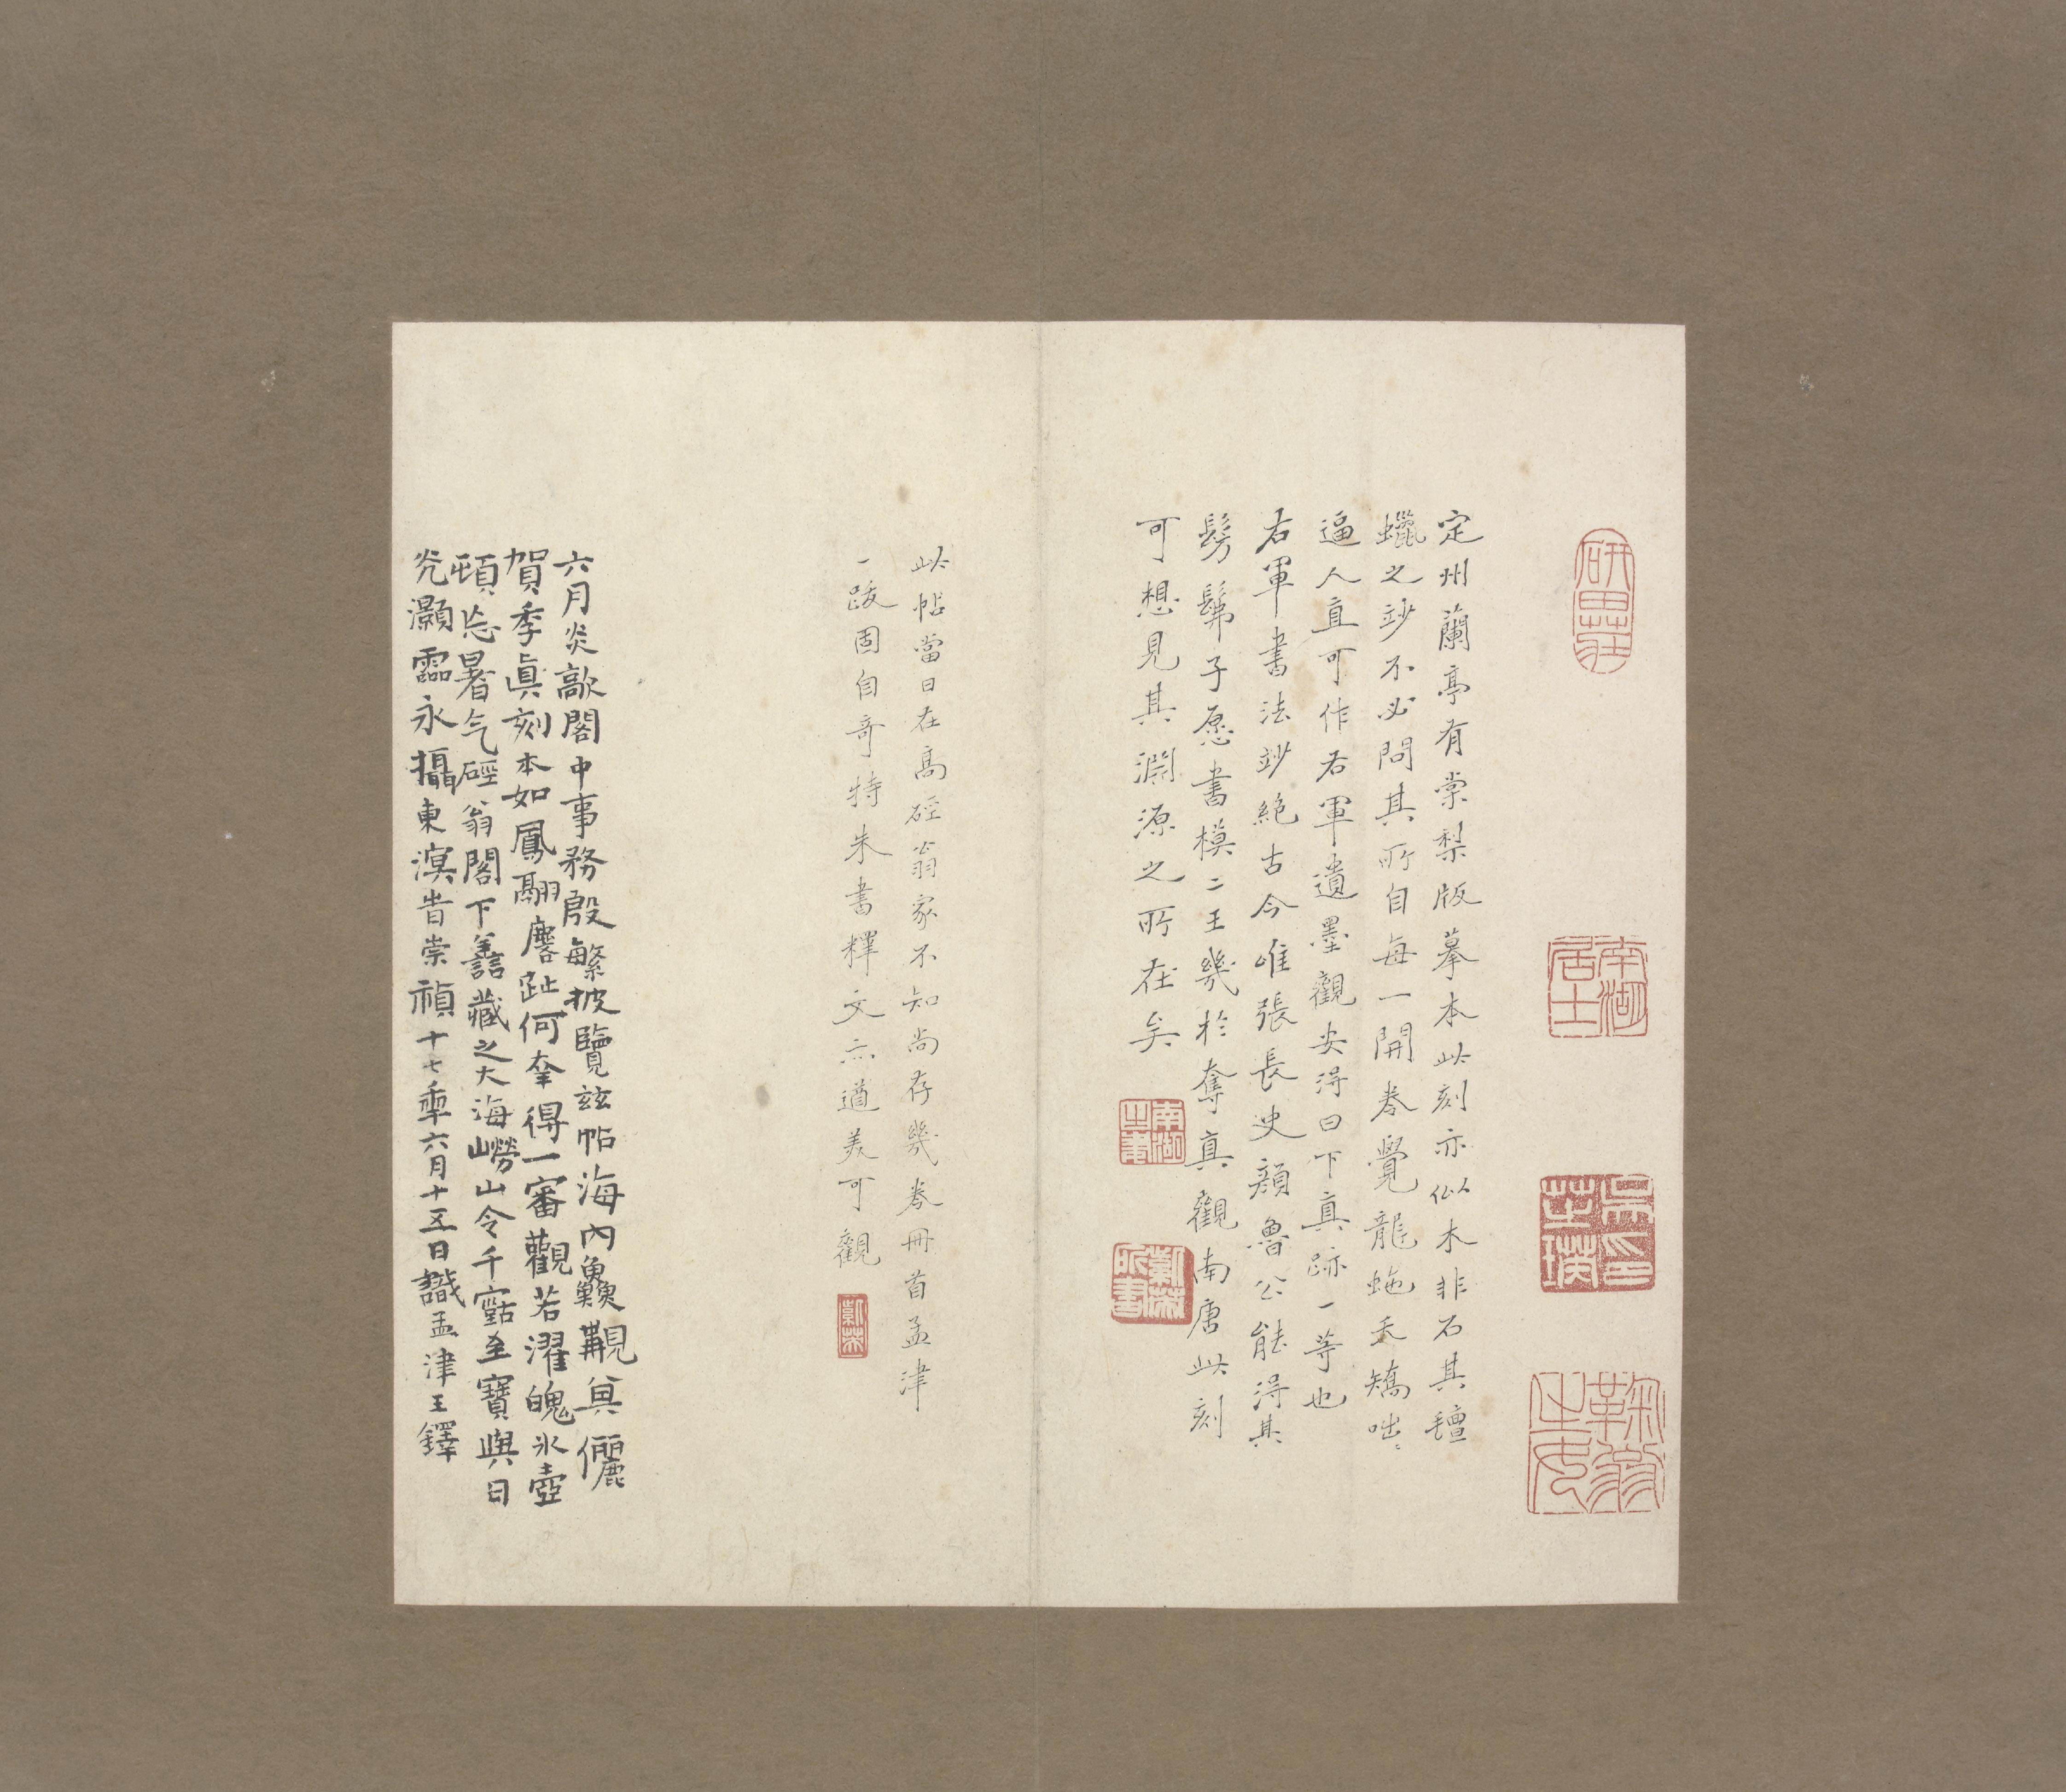 研田莊
南湖居士
吳芝瑛印
定州蘭亭有棠梨版摹本此刻亦似木非石其氊
蠟之玅不必問其所自每一開卷覺龍虵夭矯咄〻
逼人直可作右軍遺墨觀安得曰下真跡一等也
右軍書法玅絕古今唯張長史顏魯公能得其
髣髴子愿書模二王幾於奪真觀南唐此刻
可想見其淵源之所在矣
此帖當日在高硜翁家不知尚存幾卷冊首孟津
一跋固自奇特朱書釋文亦遒美可觀
六月炎歊閣中事務殷繁披覽茲帖海內鱻覯眞儷
賀季眞刻本如鳳翮麐趾何幸得一審觀若濯魄氷壺
頓忘暑气硜翁閣下譱藏之大海嶗山令千䨟至寶與日
光灝靈永攝東溟旹崇禎十七秊六月十五日識孟津王鐸